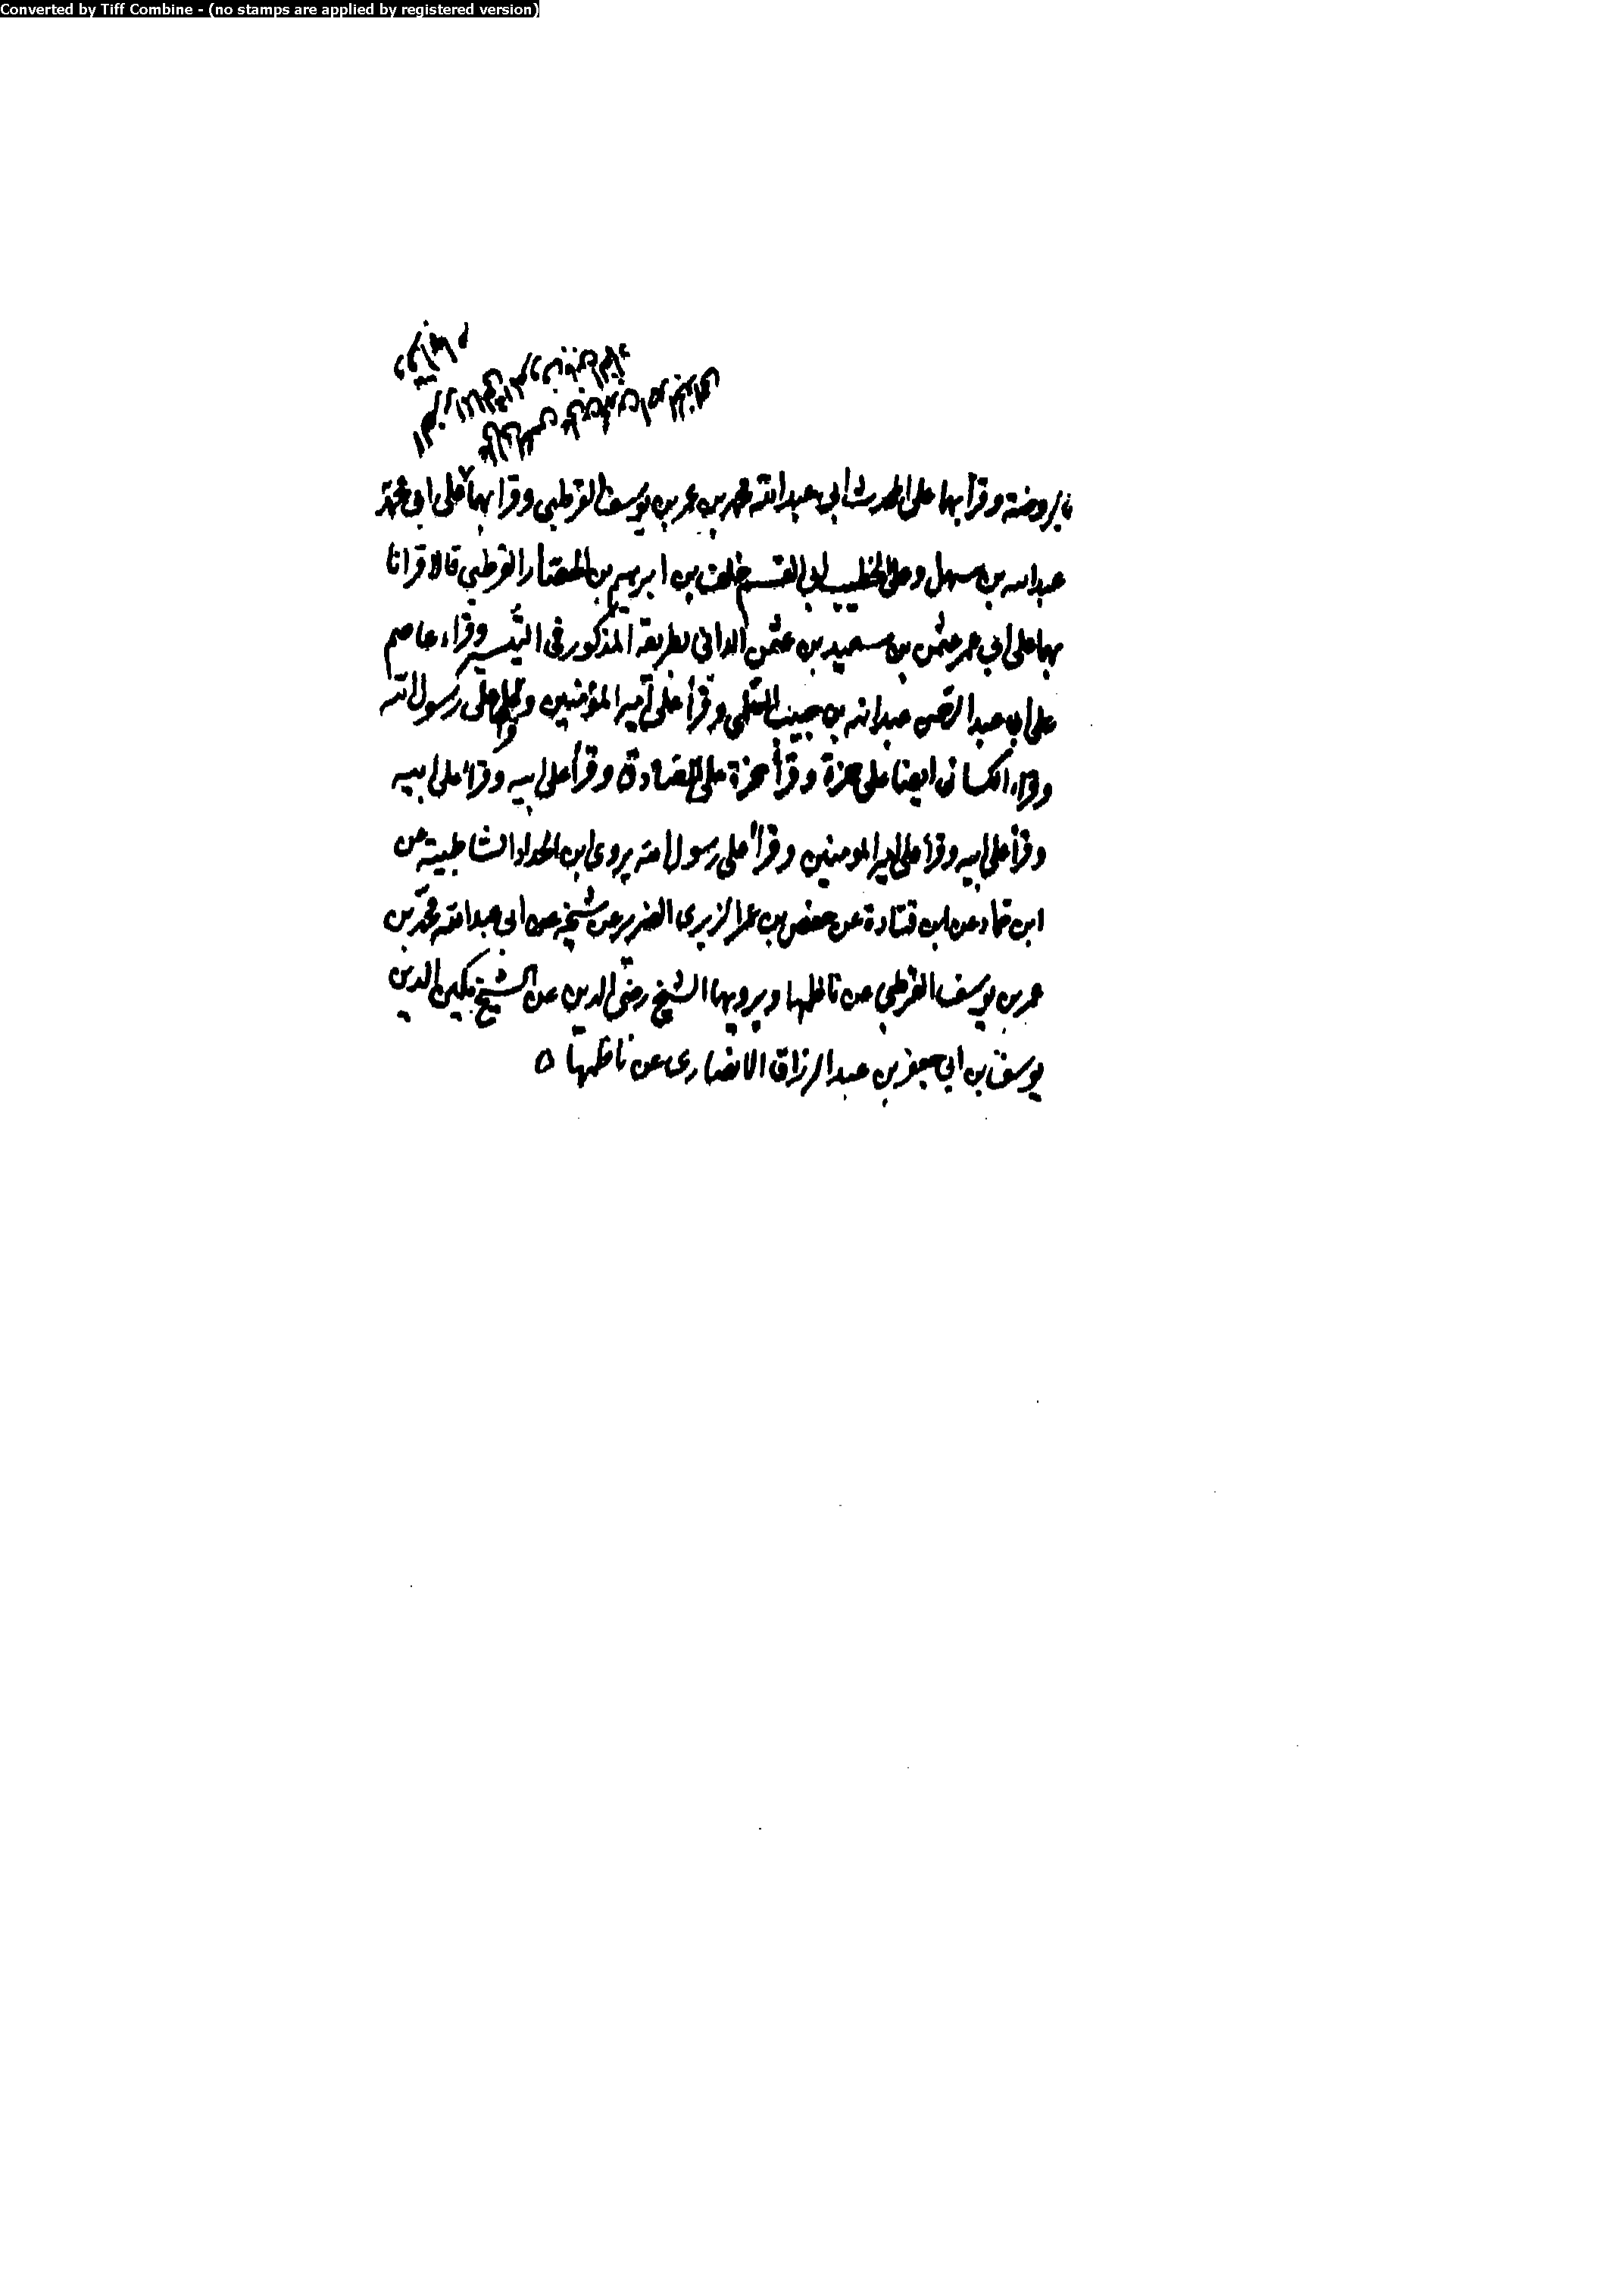 Converted by Tiff Combine - (no stamps are applied by registered version)
بالروضة وقرأ بها على المحدث ابى عبدالله محمد بن عمر بن يوسف القرطبى وقرأ بها على ابى محمد
عبدالله بن سهل وعلى الخطيب ابى القسم خلف بن ابرهيم بن الحصار القرطبي قالا قرانا
بها على ابي عمر عثمن بن سعيد بن عثمن الدانى بطريقة المذكور فى التيسير وقراء عاصم
على ابى عبد الرحمن عبدالله بن حبيب السلمى وقرأ على امير المؤمنين على رسول الله
وقراء الكسائى ايضا على حمزة وقرأ حمزة على الصادق وقرأ على ابيه وقرأ على ابيه
وقرأ على ابيه وقرأ على امير المومنين وقرأ على رسول الله يروى ابن الحداد الشاطبية عن
ابن حماد عن ابن قتادة عن حفص بن عمر الزبرى الضرير عن شيخه عن ابى عبدالله محمد بن
عمر بن يوسف القرطبي عن ناظمها ويرويها الشيخ رضى الدين عن الشيخ مكين الدين
يوسف بن ابي جعفر بن عبد الرزاق الانصارى عن ناظمها ه